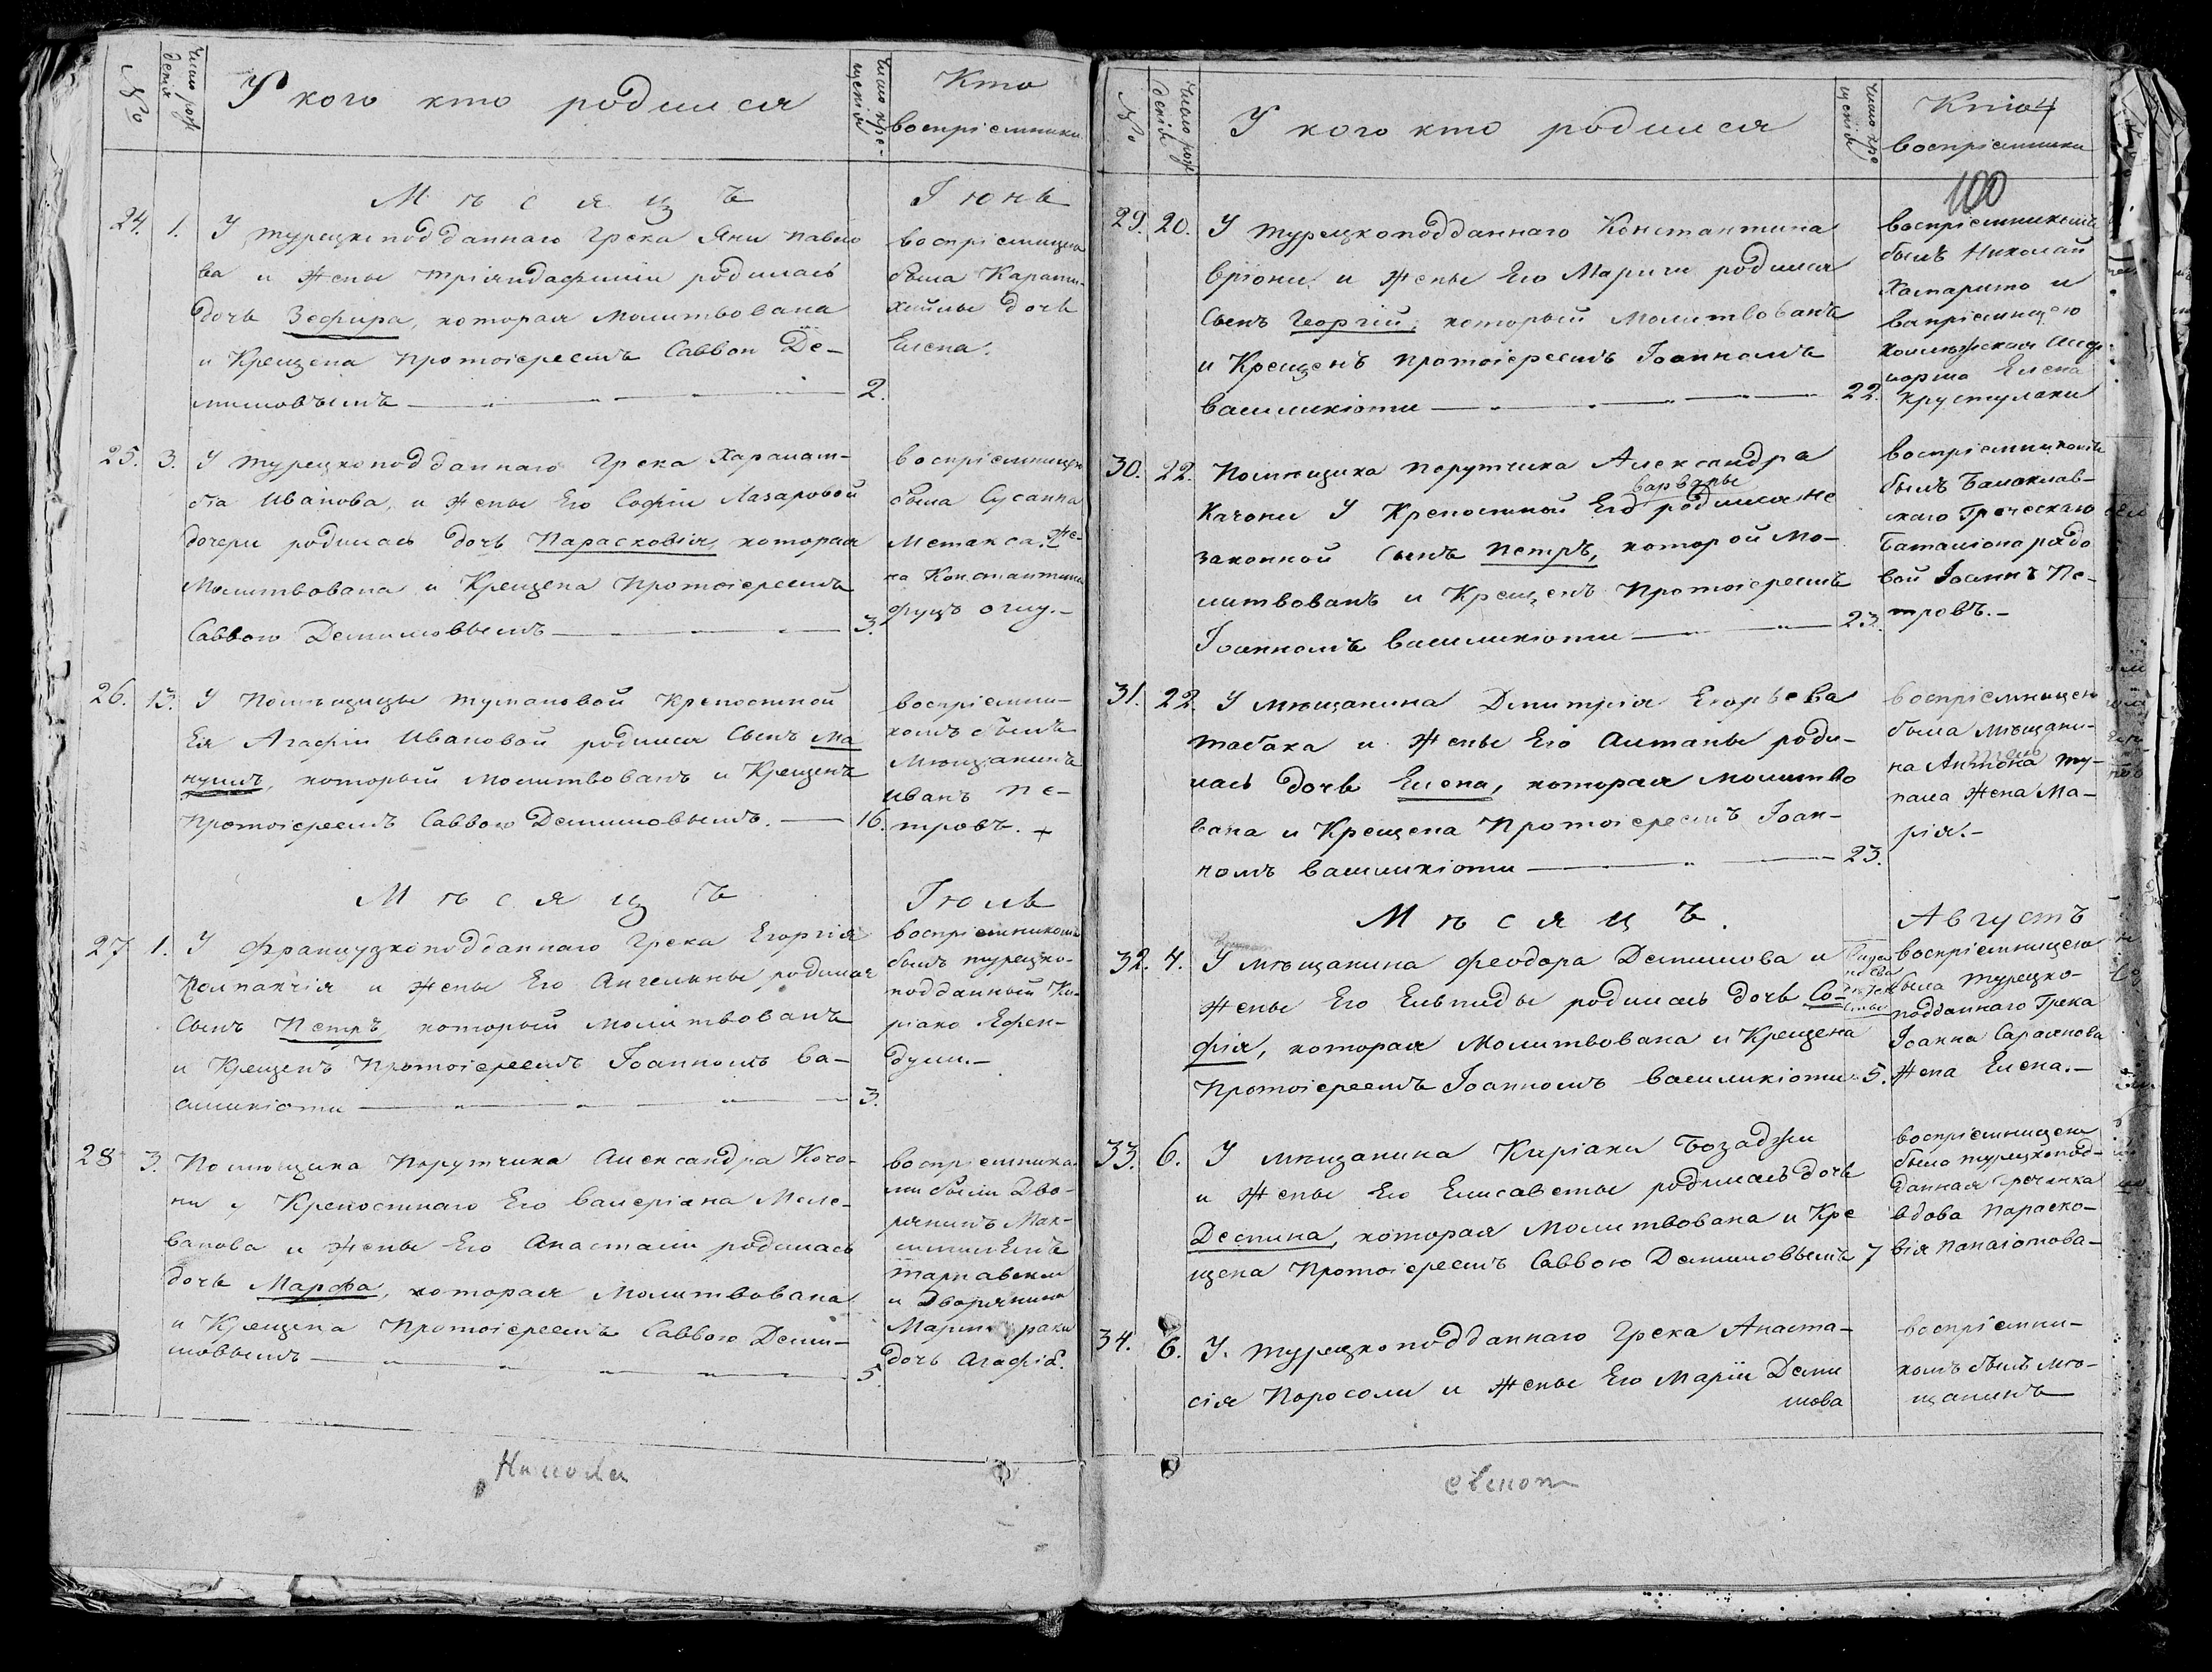 №
Число рож
денія
У кого кто родился
Число кре-
щенія
Кто
воспріемники
Мѣсяцъ
Іюнь
24. 1. У турецкоподданнаго грека Яни Павло
ва и жены Тріяндафиліи родилась
дочь Зефира, которая молитвована
и крещена Протоіереемъ Саввою Де-
мишовымъ 2.
воспріемницею
была
дочь
Елена.
25. 3. У турецкоподданнаго грека Харалам-
бія Иванова, и жены Его Софіи Лазаровой
дочери родилась дочь Парасковія, которая
молитвована и крещена Протоіереемъ
Саввою Демишовымъ 3.
воспріемницею
была Сусанна
Метакса. же-
на Константина
26. 13. У Помѣщицы Тумановой крепостной
Ея Агафіи Ивановой родился сынъ Ма
нуилъ, который молитвованъ и крещенъ
Протоіереемъ Саввою Демишовымъ. 16.
воспріемни-
комъ былъ
мѣщанинъ
Иванъ Пе-
тровъ.
Мѣсяцъ
Іюль
27. 1. У французкоподданнаго грека Егоргія
и жены Его Ангелины родился
сынъ Петръ, который молитвованъ
и крещенъ Протоіереемъ Іоанномъ Ва-
силикіоти 3.
воспріемникомъ
былъ турецко-
подданный Ки-
ріако Ефен-
дули.-
28 3. Помѣщика Порутчика Александра Качо-
ни у крепостнаго Его Валеріана Меле-
ванова и жены Его Анастасіи родилась
дочь Марфа, которая молитвована
и крещена Протоіереемъ Саввою Деми-
шовымъ 5.
воспріемника-
ми были дво-
рянинъ Мак-
Тарнавскій
и дворянина
дочь Агафія.
Николи
№
Число рож
денія
У кого кто родился
Число кре
щенія
Кто 4
воспріемники
100
29. 20. У турецкоподданнаго Константина
Вріони и жены Его Маріи родился
сынъ Георгій, который молитвованъ
и крещенъ Протоіереемъ Іоанномъ
Василикіоти 22.
воспріемникомъ
былъ Николай
и
вапріемницею
Елена
Крустулаки
30. 22. Помѣщика Порутчика Александра
Качони у крепостной Его Варвары родился не
законной сынъ Петръ, которой мо-
литвованъ и крещенъ Протоіереемъ
Іоанномъ Василикіоти 23.
воспріемникомъ
былъ Балаклав-
скаго Греческаго
Баталіона рядо
вой Іоаннъ Пе-
тровъ.-
31. 22. У мѣщанина Дмитрія Егорьева
Табака и жены Его Алтаны роди-
лась дочь Елена, которая молитво
вана и крещена Протоіереемъ Іоан-
номъ Василикіоти 23.
воспріемницею
была мѣщани-
на Антона Ту-
пала жена Ма-
рія.-
Мѣсяцъ.
Августъ
32. 4. У мѣщанина Феодора Демишова и
жены Его Елпиды родилась дочь Со-
фія, которая молитвована и крещена
Протоіереемъ Іоанномъ Василикіоти 5.
воспріемницею
была турецко-
подданнаго грека
Іоанна Сараянова
жена Елена.-
33. 6. У мѣщанина Киріаки Бозаджи
и жены Его Елисаветы родилась дочь
Деспина, которая молитвована и кре
щена Протоіереемъ Саввою Демишовымъ 7
воспріемницею
была турецкопод-
данная гречанка
вдова Параско-
вія Панаіотова-
34. 6. У. турецкоподданнаго грека Анаста-
сія Поросоли и жены Его Маріи Деми
шова
воспріемни-
комъ былъ мѣ-
щанинъ